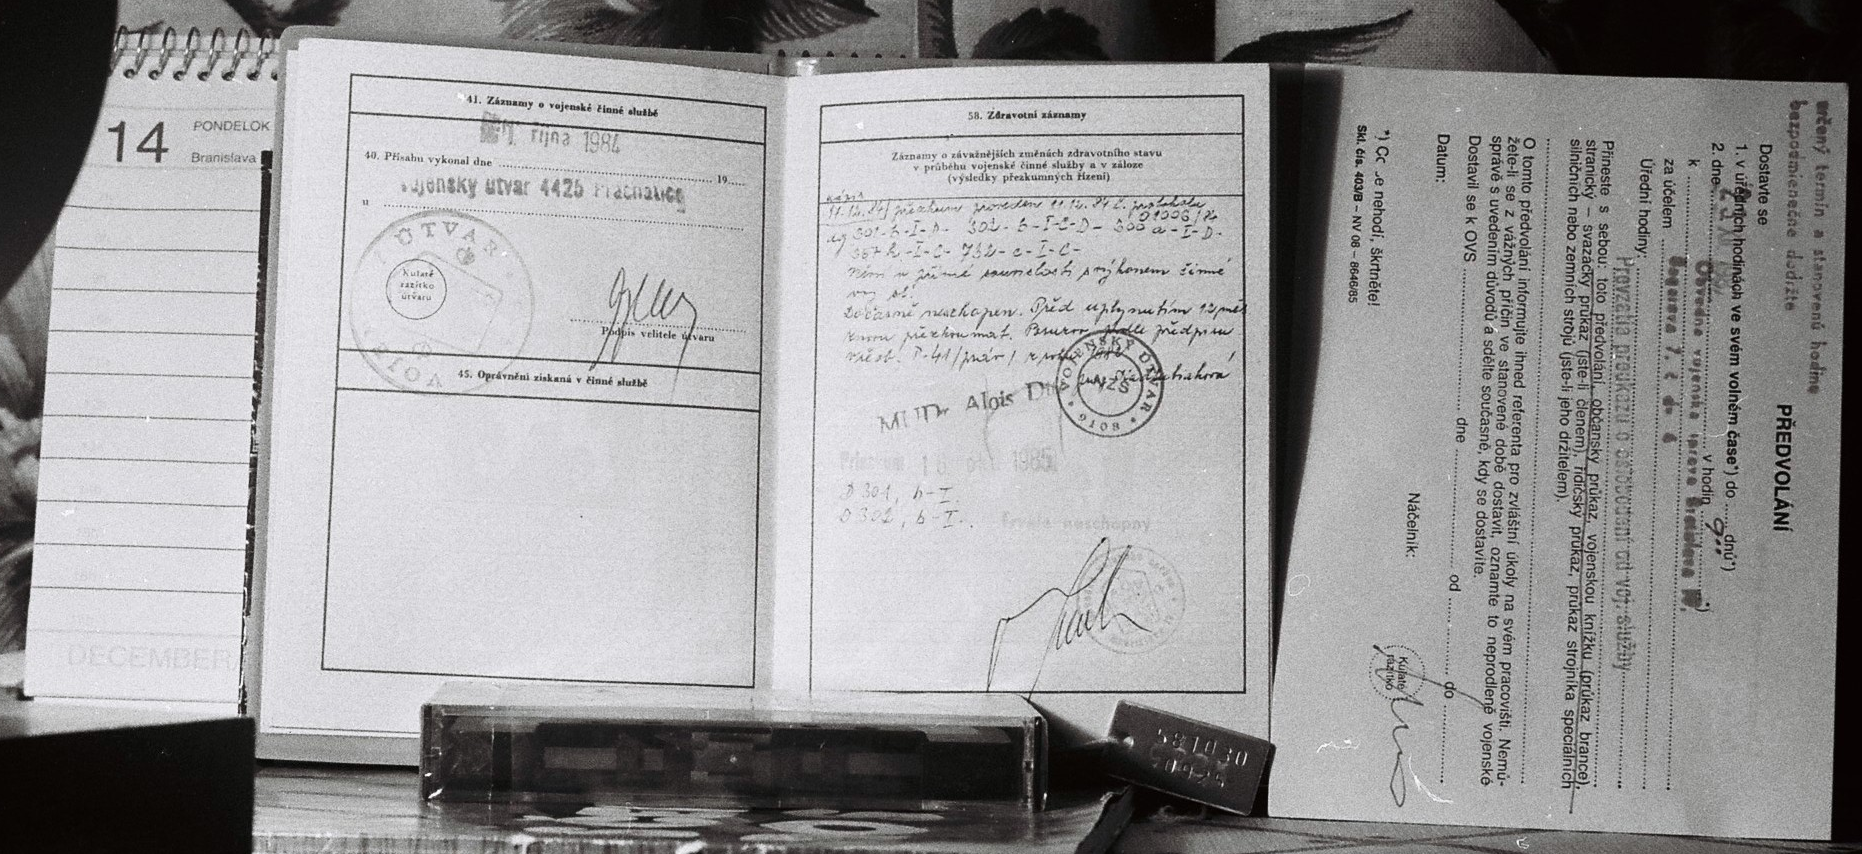 14
PONDELOK
Branislava
DECEMBER
41. Záznamy o vojenské činné službě
října 1984
40. Přísahu vykonal dne 19
vojenský útvar 4425 Prachatice
u
ÚTVAR
VOJE
Kulaté
razítko
útvaru
Podpis velitele útvaru
45. Oprávnění získaná v činné službě
58. Zdravotní záznamy
Záznamy o závažnějších změnách zdravotního stavu
v průběhu vojenské činné služby a v záloze
(výsledky přezkumných řízení)
11.12.84 přezkum proveden 11.12.84 č. protokolu
01006/84
301-b-I-D- 302-b-I-C-D- 300 a-I-D-
367 h-I-C- 732-c-I-C-
Není v přímé souvislosti s výkonem činné
voj. sl.
Dočasně neschopen. Před uplynutím 12 měs
znovu přezkoumat. podle předpisu
VOJENSKÝ ÚTVAR
6108
MUDr Alois
1985
D 301, b-I.
D 302, b-I.
Trvale neschopný
581030
určený termín a stanovenú hodinu
bezpodmienečne dodržte
PŘEDVOLÁNÍ
Dostavte se
1. v úředních hodinách ve svém volném čase*) do dnů*)
2. dne v hodin 9.00 *)
k Obvodná vojenská správa Bratislava
za účelem
Úřední hodiny:
Prevzatie preukazu o oslobodení od voj. služby
Přineste s sebou: toto předvolání, občanský průkaz, vojenskou knížku (průkaz brance),
stranický – svazácký průkaz (jste-li členem), řidičský průkaz, průkaz strojníka speciálních
silničních nebo zemních strojů (jste-li jeho držitelem).
O tomto předvolání informujte ihned referenta pro zvláštní úkoly na svém pracovišti. Nemů-
žete-li se z vážných příčin ve stanovené době dostavit, oznamte to neprodleně vojenské
správě s uvedením důvodů a sdělte současně, kdy se dostavíte.
Dostavil se k OVS dne od do
Datum:
Náčelník:
Kulaté
razítko
*) Co se nehodí, škrtněte!
Skl. čís. 403/B – NV 08 – 8646/85